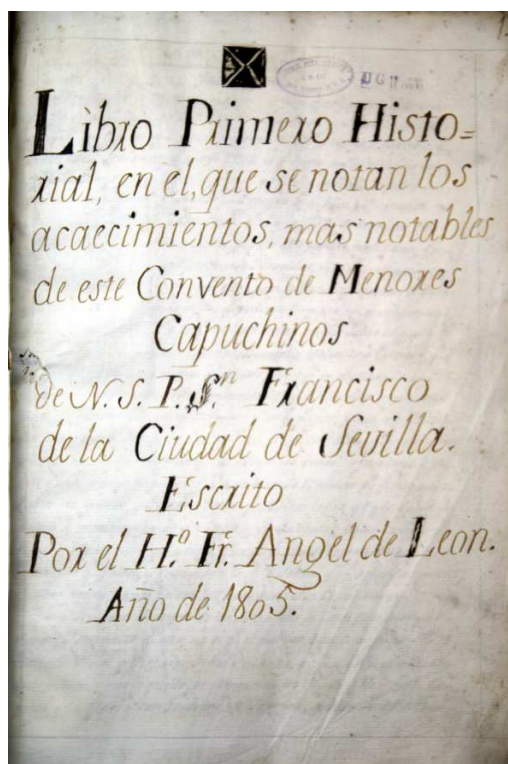 Libro Primero Histo=
rial, en el, que se notan los
acaecimientos, mas notables
de este Convento de Menores
Capuchinos
de N. S. P. S.ⁿ Francisco
de la Ciudad de Sevilla.
Escrito
Por el H.º Fr. Angel de Leon.
Año de 1805.